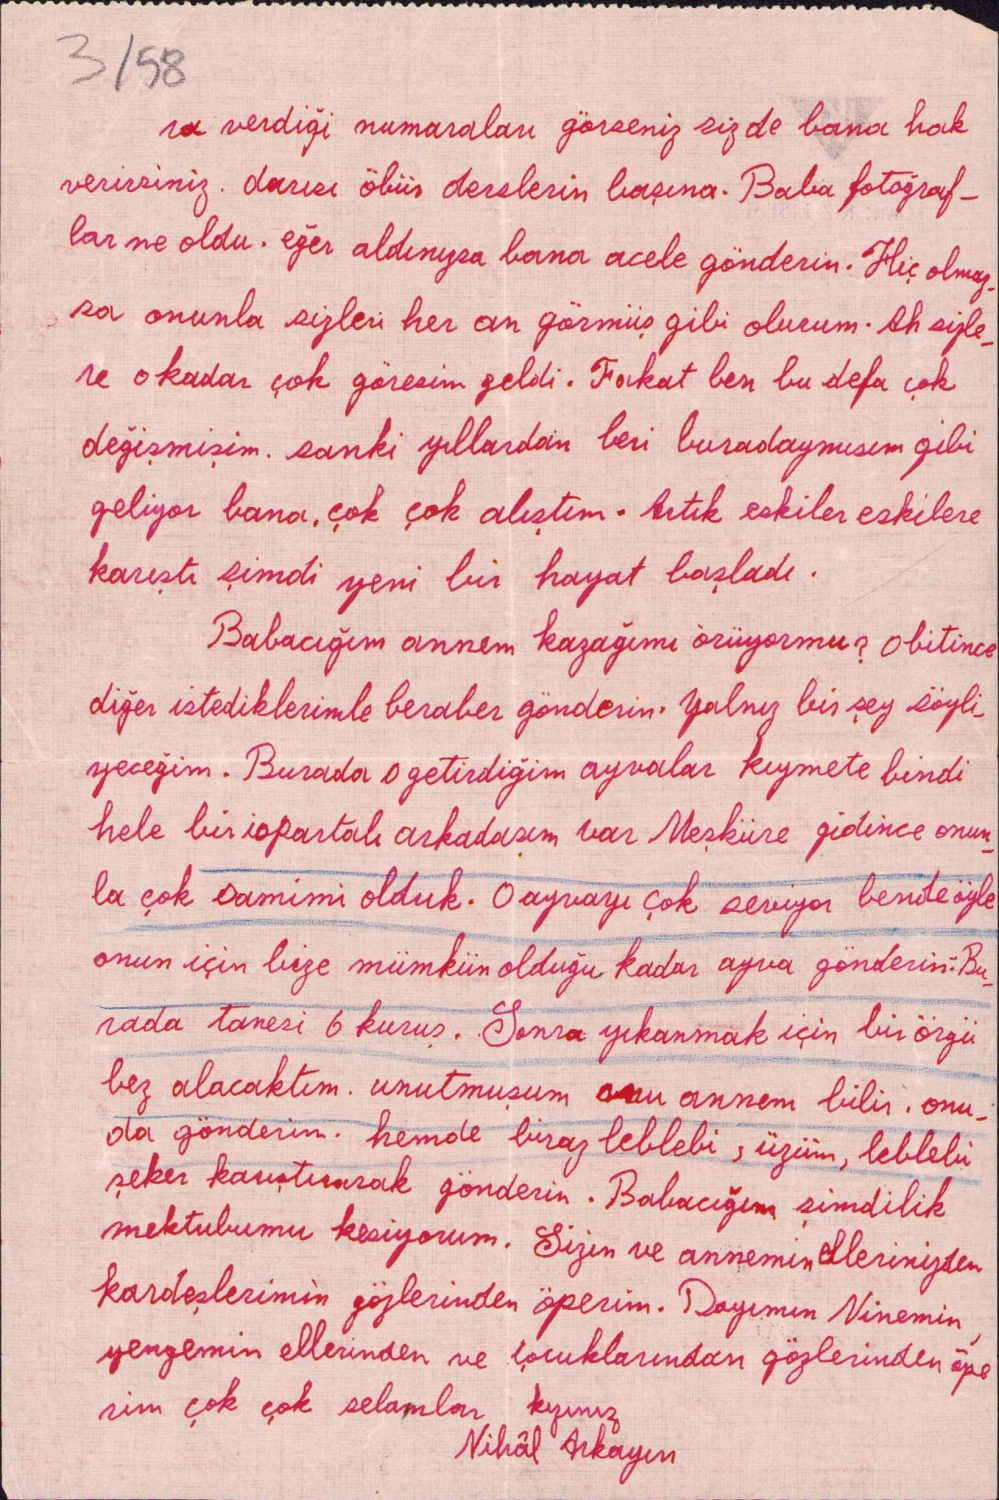 3/58
ra verdiği numaraları görseniz sizde bana hak
verirsiniz. darısı öbüs derslerin başına. Baba fotoğraf-
lar ne oldu. eğer aldınızsa bana acele gönderin. Hiç olmaz-
sa onunla sizleri her an görmüş gibi olurum. Ah sizle-
re o kadar çok göresim geldi. Fakat ben bu defa çok
değişmişim. sanki yıllardan beri buradaymısım gibi
geliyor bana, çok çok alıştım. Artık eskiler eskilere
karıştı şimdi yeni bir hayat başladı.
Babacığım annem kazağımı örüyormu? O bitince
diğer istediklerimle beraber gönderin. Yalnız bir şey söyli-
yeceğim. Burada o getirdiğim ayvalar kıymete bindi
hele bir ispartalı arkadaşım var Meşküre gidince onun-
la çok samimi olduk. O ayvayı çok seviyor bende öyle
onun için bize mümkün olduğu kadar ayva gönderin. Bu-
rada tanesi 6 kuruş. Sonra yıkanmak için bir örgü
bez alacaktım. unutmuşum onu annem bilir. onu-
da gönderin. hemde biraz leblebi, üzüm, leblebi
şeker karıştırarak gönderin. Babacığım şimdilik
mektubumu kesiyorum. Sizin ve annemin ellerinizden
kardeşlerimin gözlerinden öperim. Dayımın Ninemin,
yengemin ellerinden ve çocuklarından gözlerinden öpe
rim çok çok selamlar kızınız
Nihâl Arkayın